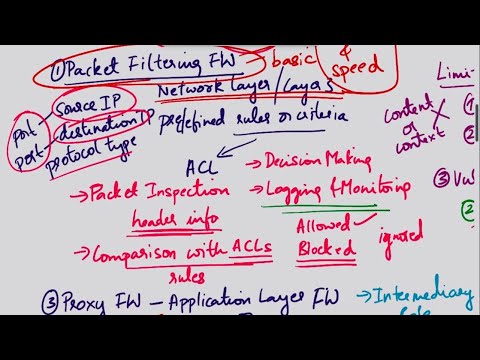 ① Packet Filtering FW – basic & speed
Network layer / Layer 3
port Source IP
port destination IP
protocol type
predefined rules or criteria
ACL
→ Packet Inspection
header info
→ Comparison with ACLs
rules
→ Decision Making
→ Logging & Monitoring
Allowed ✓
Blocked ignored
content or context
Limi
①
②
③ Vul
③ Proxy FW – Application Layer FW → Intermediary